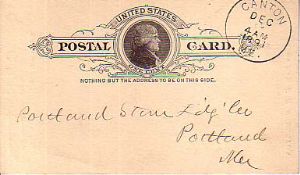 UNITED STATES
POSTAL CARD.
ONE CENT
NOTHING BUT THE ADDRESS TO BE ON THIS SIDE.
CANTON
DEC
4 AM
1891
Portland Ston
Portland
Me